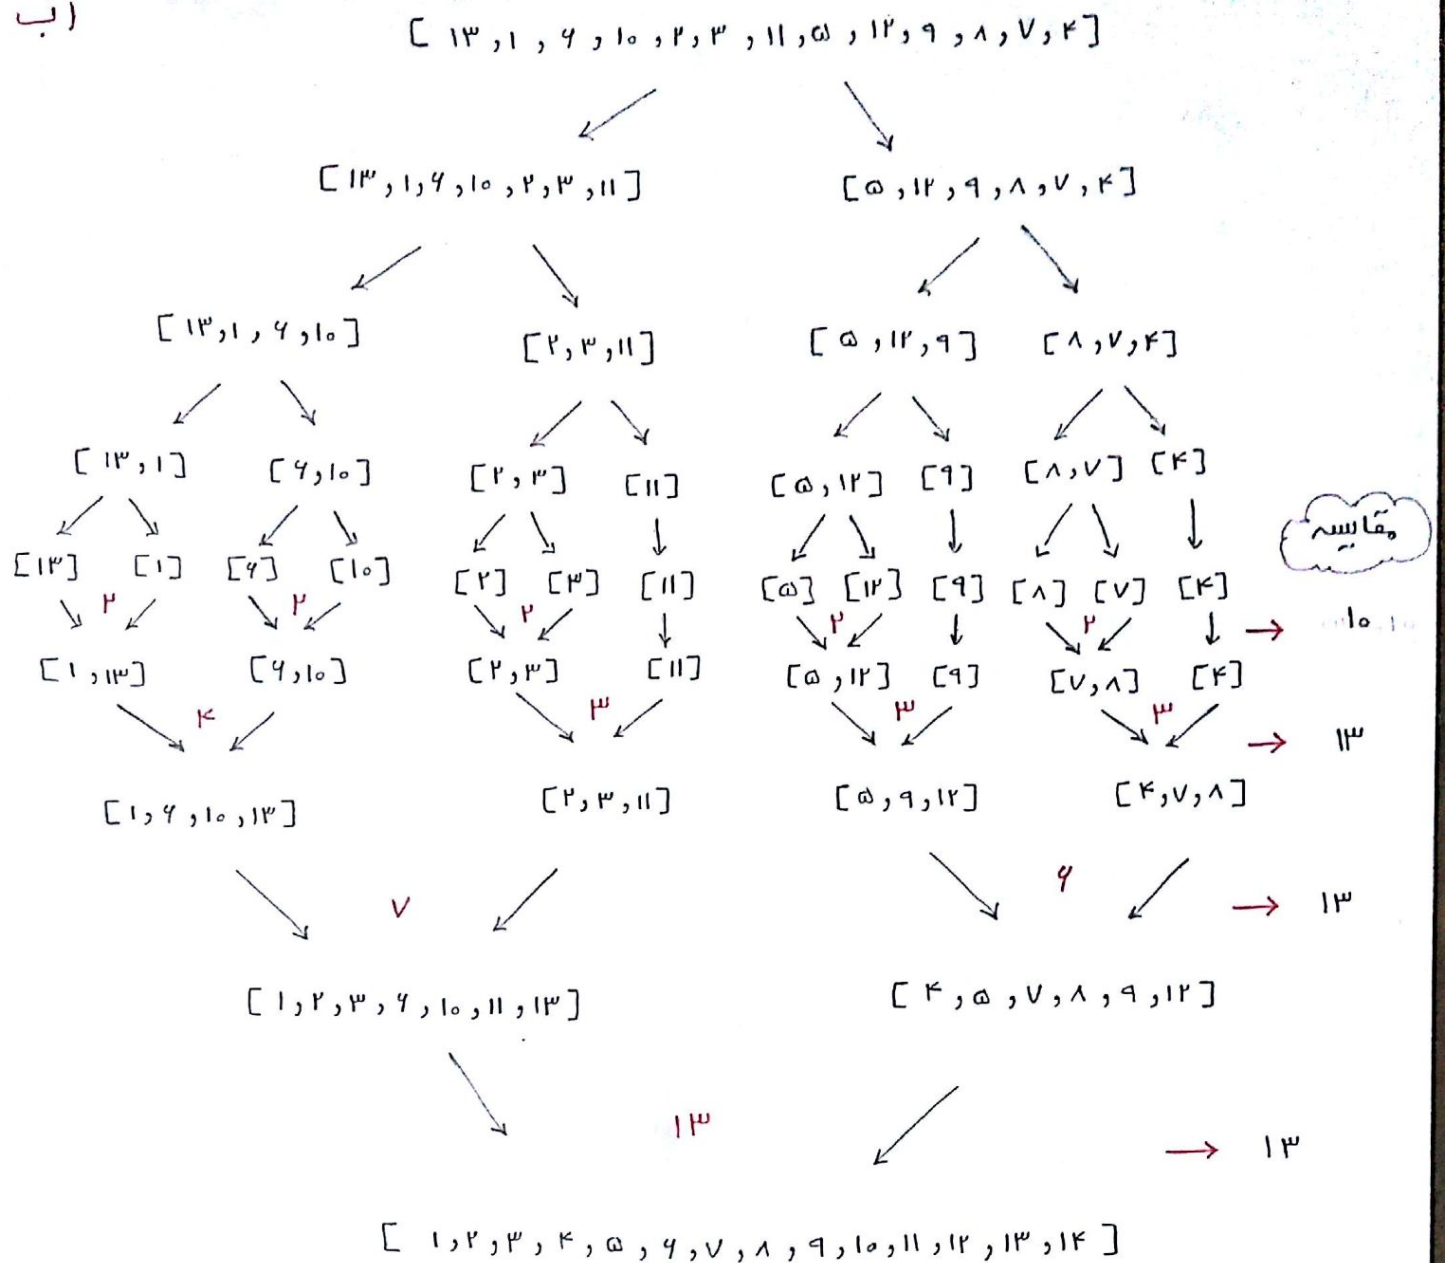 ب)
[ ۱۳ , ۱ , ۶ , ۱۰ , ۲ , ۳ , ۱۱ , ۵ , ۱۲ , ۹ , ۸ , ۷ , ۴ ]
[ ۱۳ , ۱ , ۶ , ۱۰ , ۲ , ۳ , ۱۱ ] [ ۵ , ۱۲ , ۹ , ۸ , ۷ , ۴ ]
[ ۱۳ , ۱ , ۶ , ۱۰ ] [ ۲ , ۳ , ۱۱ ] [ ۵ , ۱۲ , ۹ ] [ ۸ , ۷ , ۴ ]
[ ۱۳ , ۱ ] [ ۶ , ۱۰ ] [ ۲ , ۳ ] [ ۱۱ ] [ ۵ , ۱۲ ] [ ۹ ] [ ۸ , ۷ ] [ ۴ ]
مقایسه
[ ۱۳ ] [ ۱ ] [ ۶ ] [ ۱۰ ] [ ۲ ] [ ۳ ] [ ۱۱ ] [ ۵ ] [ ۱۲ ] [ ۹ ] [ ۸ ] [ ۷ ] [ ۴ ]
۲ ۲ ۲ ۲ ۲ → ۱۰
[ ۱ , ۱۳ ] [ ۶ , ۱۰ ] [ ۲ , ۳ ] [ ۱۱ ] [ ۵ , ۱۲ ] [ ۹ ] [ ۷ , ۸ ] [ ۴ ]
۴ ۳ ۳ ۳ → ۱۳
[ ۱ , ۶ , ۱۰ , ۱۳ ] [ ۲ , ۳ , ۱۱ ] [ ۵ , ۹ , ۱۲ ] [ ۴ , ۷ , ۸ ]
۷ ۶ → ۱۳
[ ۱ , ۲ , ۳ , ۶ , ۱۰ , ۱۱ , ۱۳ ] [ ۴ , ۵ , ۷ , ۸ , ۹ , ۱۲ ]
۱۳ → ۱۳
[ ۱ , ۲ , ۳ , ۴ , ۵ , ۶ , ۷ , ۸ , ۹ , ۱۰ , ۱۱ , ۱۲ , ۱۳ , ۱۴ ]